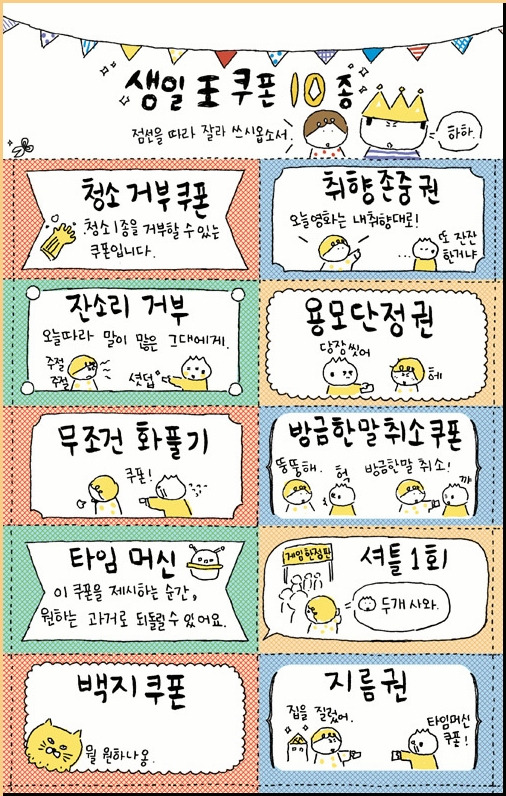 생일 王 쿠폰 10종
점선을 따라 잘라 쓰시옵소서.
하하.
청소 거부 쿠폰
청소 1종을 거부할 수 있는
쿠폰입니다.
취향 존중권
오늘영화는 내취향대로!
또 잔잔
한거냐
잔소리 거부
오늘따라 말이 많은 그대에게.
주절
주절
셧덥
용모단정권
당장씻어
헤
무조건 화풀기
쿠폰!
방금한말취소쿠폰
뚱뚱해.
헉
방금한말 취소!
까
타임 머신
이 쿠폰을 제시하는 순간,
원하는 과거로 되돌릴 수 있어요.
셔틀 1회
게임한정판
두개 사와.
백지 쿠폰
뭘 원하나옹.
지름권
집을 질렀어.
타임머신
쿠폰!